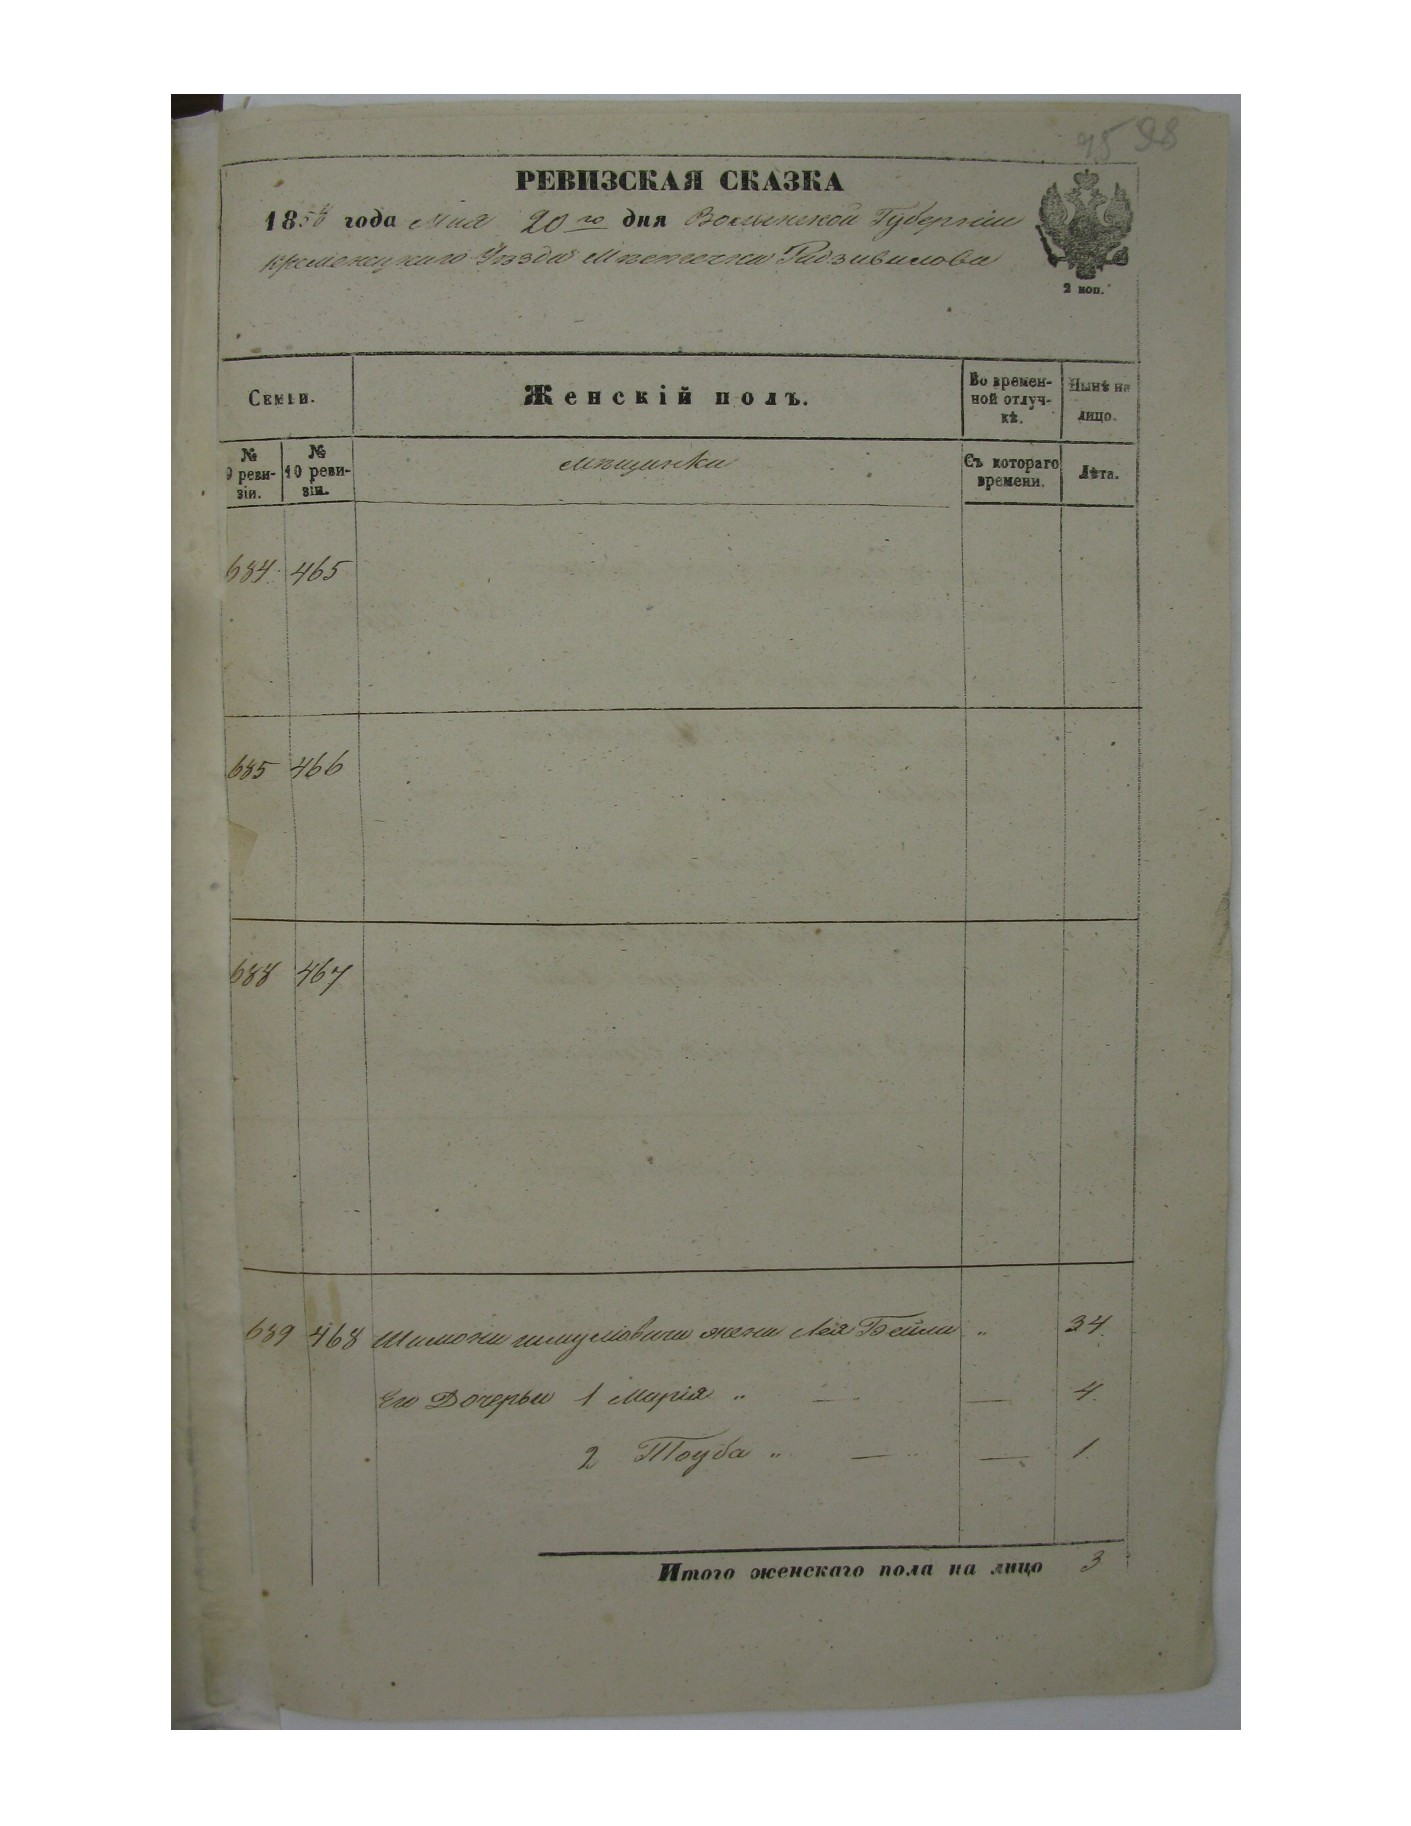 75 98
РЕВИЗСКАЯ СКАЗКА
1858 года Мая 20го дня Волынской Губернiи
Кременецкаго Уѣзда Мѣстечка Радзивилова
2 коп.
Семьи.
Женскiй полъ.
Во времен-
ной отлуч-
кѣ.
Нынѣ на
лицо.
№
9 реви-
зiи.
№
10 реви-
зiи.
мѣщанки
Съ котораго
времени.
Лѣта.
684 465
685 466
688 467
689 468 Шимона Шмуловича жена Лея Бейла " 34.
Его Дочерьи 1 Марiя " — — 4.
2 Тоуба " — — 1.
Итого женскаго пола на лицо 3